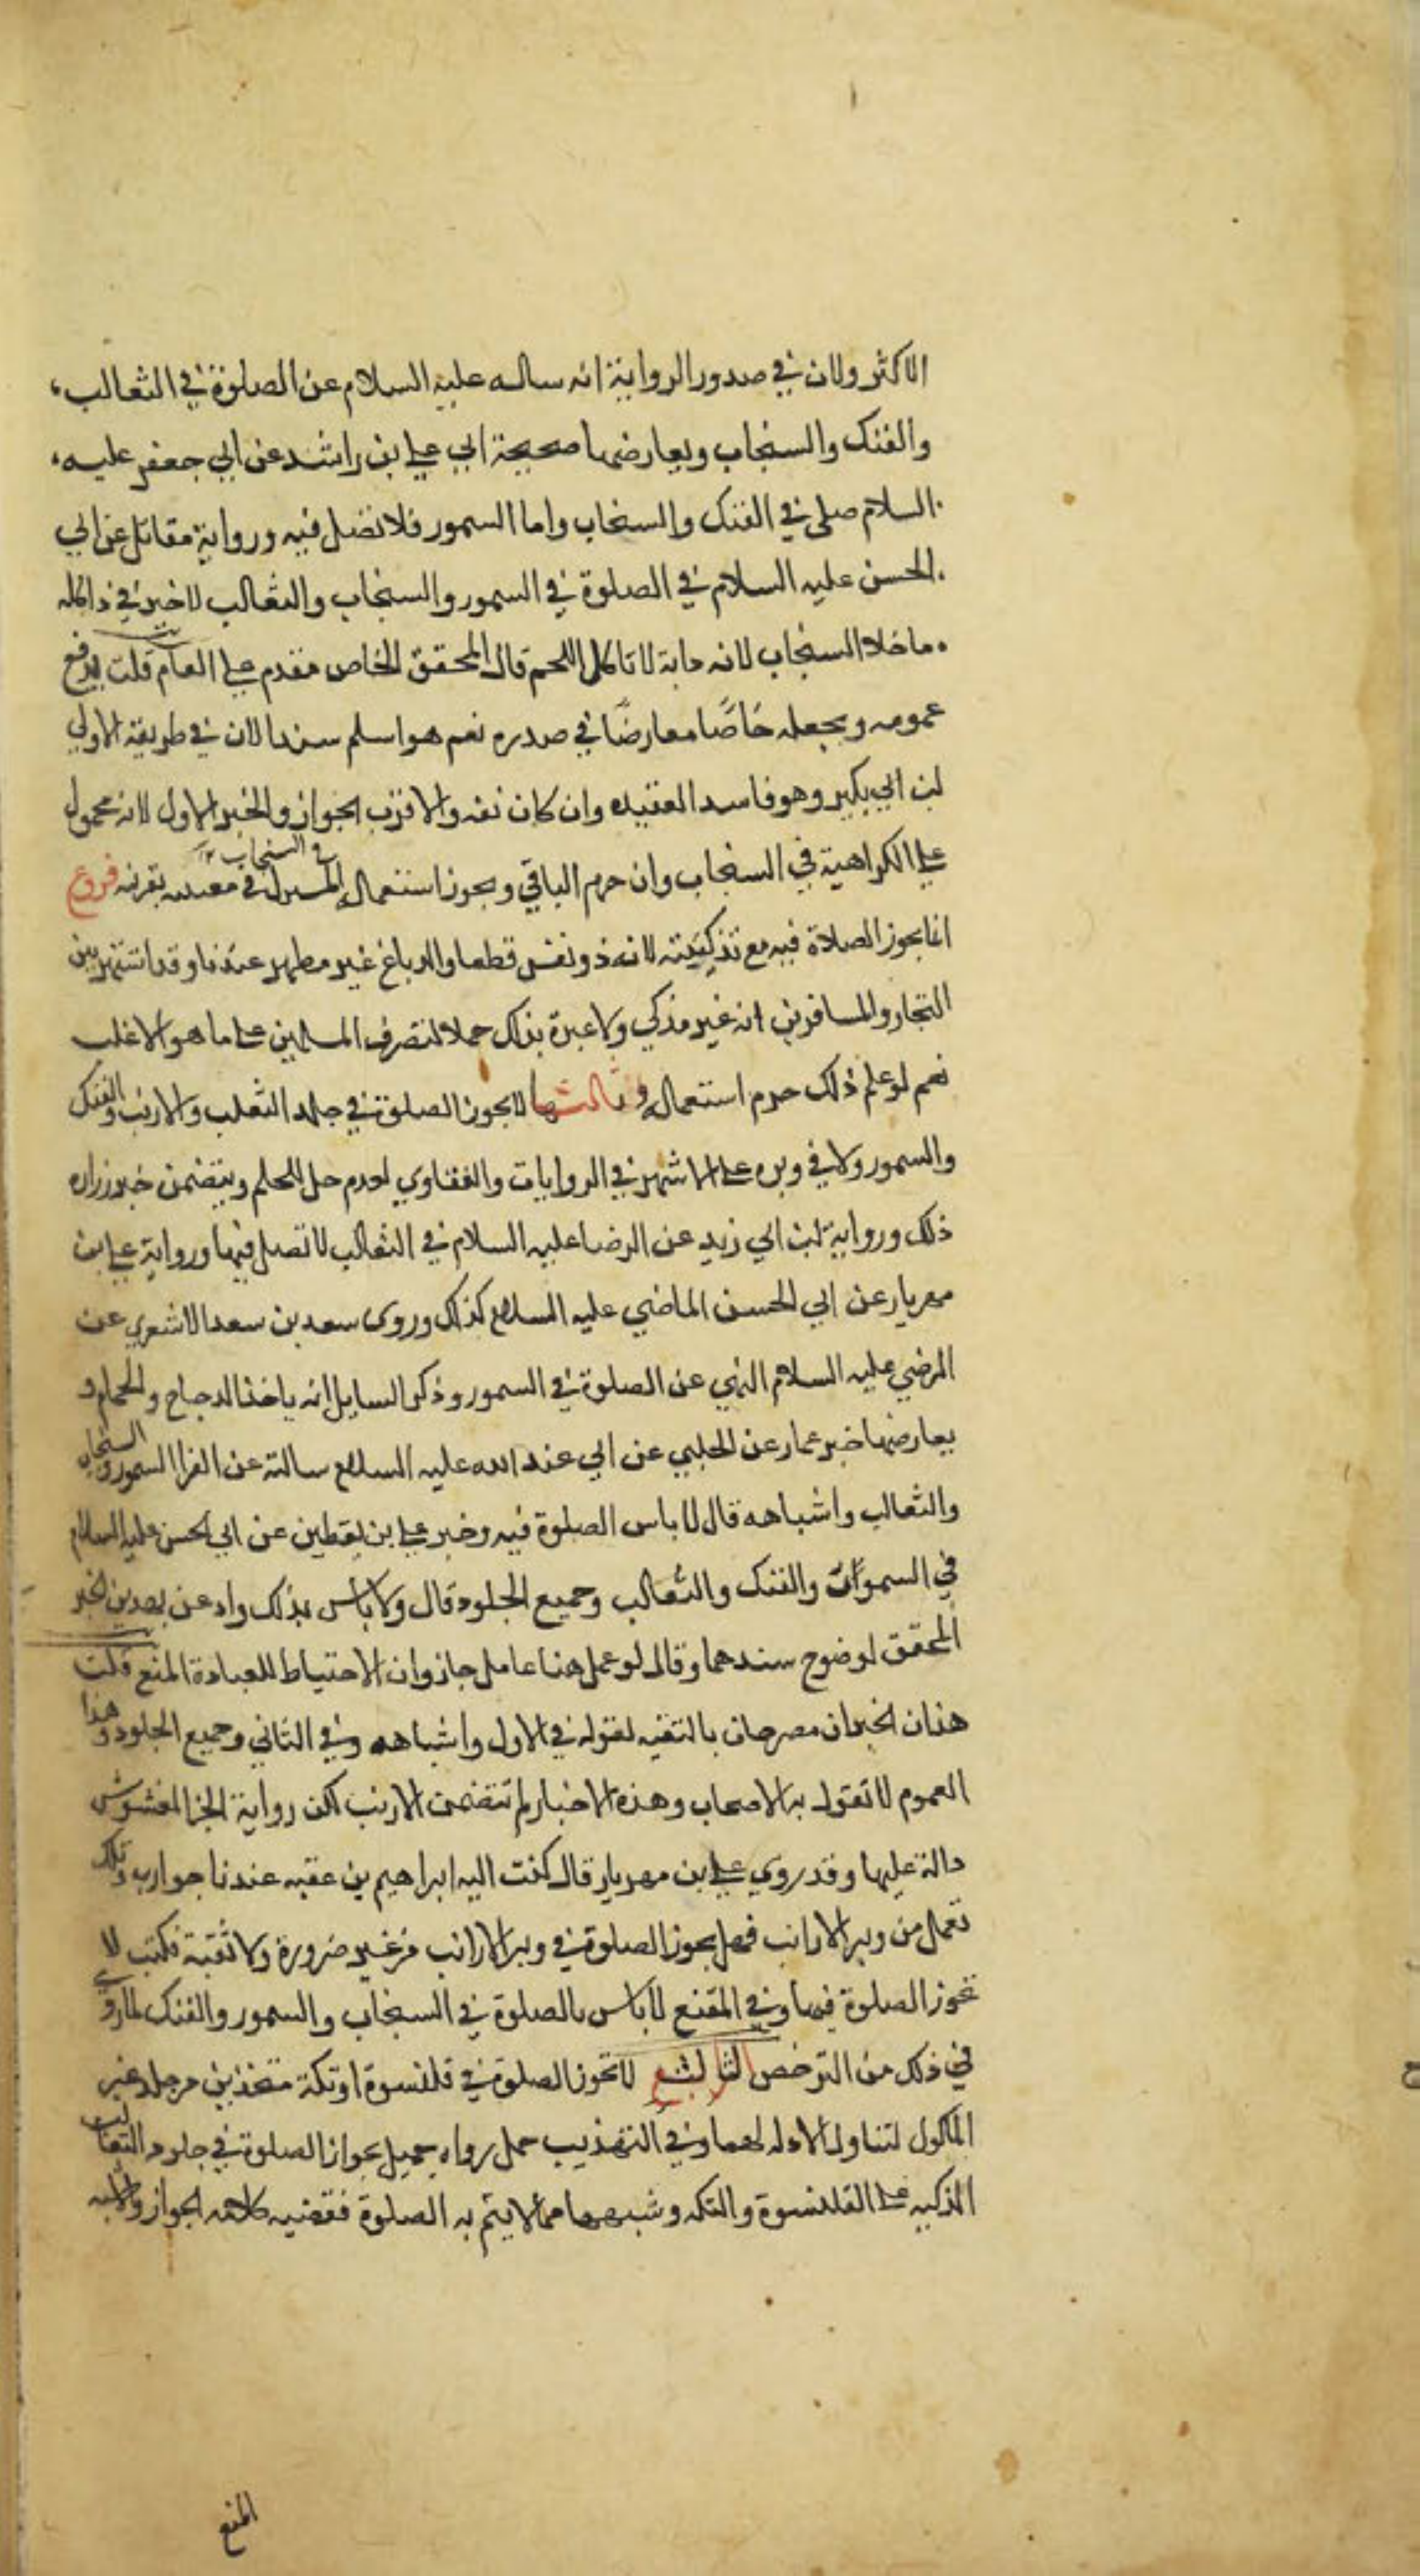 الاكثر ولان في صدور الرواية انه ساله عليه السلام عن الصلوة في الثعالب
والفنك والسنجاب ويعارضها صحيحة ابي علي بن راشد عن ابي جعفر عليه
السلام صلى في الفنك والسنجاب واما السمور فلا تصل فيه ورواية مقاتل عن ابي
الحسن عليه السلام في الصلوة في السمور والسنجاب والثعالب لا خير في ذا كله
ما خلا السنجاب لانه دابة لا تاكل اللحم قال المحقق الخاص مقدم على العام قلت
عمومه ويجعله خاصًا معارضًا في صدره نعم هو اسلم سندا لان في طريقة الاولي
ابن ابي بكير وهو فاسد العقيده وان كان ثقه والاقرب الجواز والخبر الاول لانه محمول
على الكراهية في السنجاب وان حرم الباقي ويجوز استعمال المشترك في السنجاب في معنييه بقرينه فروع
انما يجوز الصلاة فيه مع تذكيته لانه ذو نفس قطعا والدباغ غير مطهر عندنا وقد اشتهر بين
التجار والمسافرين انه غير مذكي ولا عبرة بذلك حملا لتصرف المسلمين على ما هو الاغلب
نعم لو علم ذلك حرم استعماله وثالثها لا يجوز الصلوة في جلد الثعلب والارنب والفنك
والسمور ولا في وبره على الاشهر في الروايات والفتاوي لعدم حل اللحم ويتضمن خبر زراره
ذلك ورواية ابن ابي زيد عن الرضا عليه السلام في الثعالب لا تصل فيها ورواية علي بن
مهريار عن ابي الحسن الماضي عليه السلام كذلك وروى سعد بن سعد الاشعري عن
الرضي عليه السلام النهي عن الصلوة في السمور وذكر السايل انه ياخذ الدجاج والحمام و
يعارضها خبر عمار عن الحلبي عن ابي عبد الله عليه السلام سالته عن الفرا السمور والسنجاب
والثعالب واشباهه قال لا باس الصلوة فيه وخبر علي بن يقطين عن ابي الحسن عليه السلام
في السمور والفنك والثعالب وجميع الجلود قال ولا باس بذلك واد عن بهدين الخبر
المحقق لوضوح سندهما وقال لو عمل هنا عامل جاز وان الاحتياط للعبادة المنع قلت
هذان الخبران مصرحان بالتقيه لقوله في الاول واشباهه وفي الثاني وجميع الجلود وهذا
العموم لا تقول به الاصحاب وهذه الاخبار لم تتضمن الارنب لكن رواية الخز المغشوش
دالة عليها وقد روي علي بن مهريار قال كتب اليه ابراهيم بن عقبه عندنا جوارب وتكك
تعمل من وبر الارانب فهل يجوز الصلوة في وبر الارانب من غير ضرورة ولا تقية فكتب لا
تجوز الصلوة فيها وفي المقنع لا باس بالصلوة في السنجاب والسمور والفنك لما روي
في ذلك من الترخص الثالث لا تجوز الصلوة في قلنسوة او تكة متخذين من جلد غير
الماكول لتناول الادله لهما وفي التهذيب حمل رواه جميل بجواز الصلوة في جلود الثعالب
الذكيه على القلنسوة والتكه وشبههما مما لا يتم به الصلوة فقضيه كلامه الجواز والاشبه
المنع